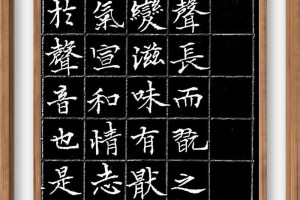 聲長而翫之
變滋味有猒
氣宣和情志
於聲音也是